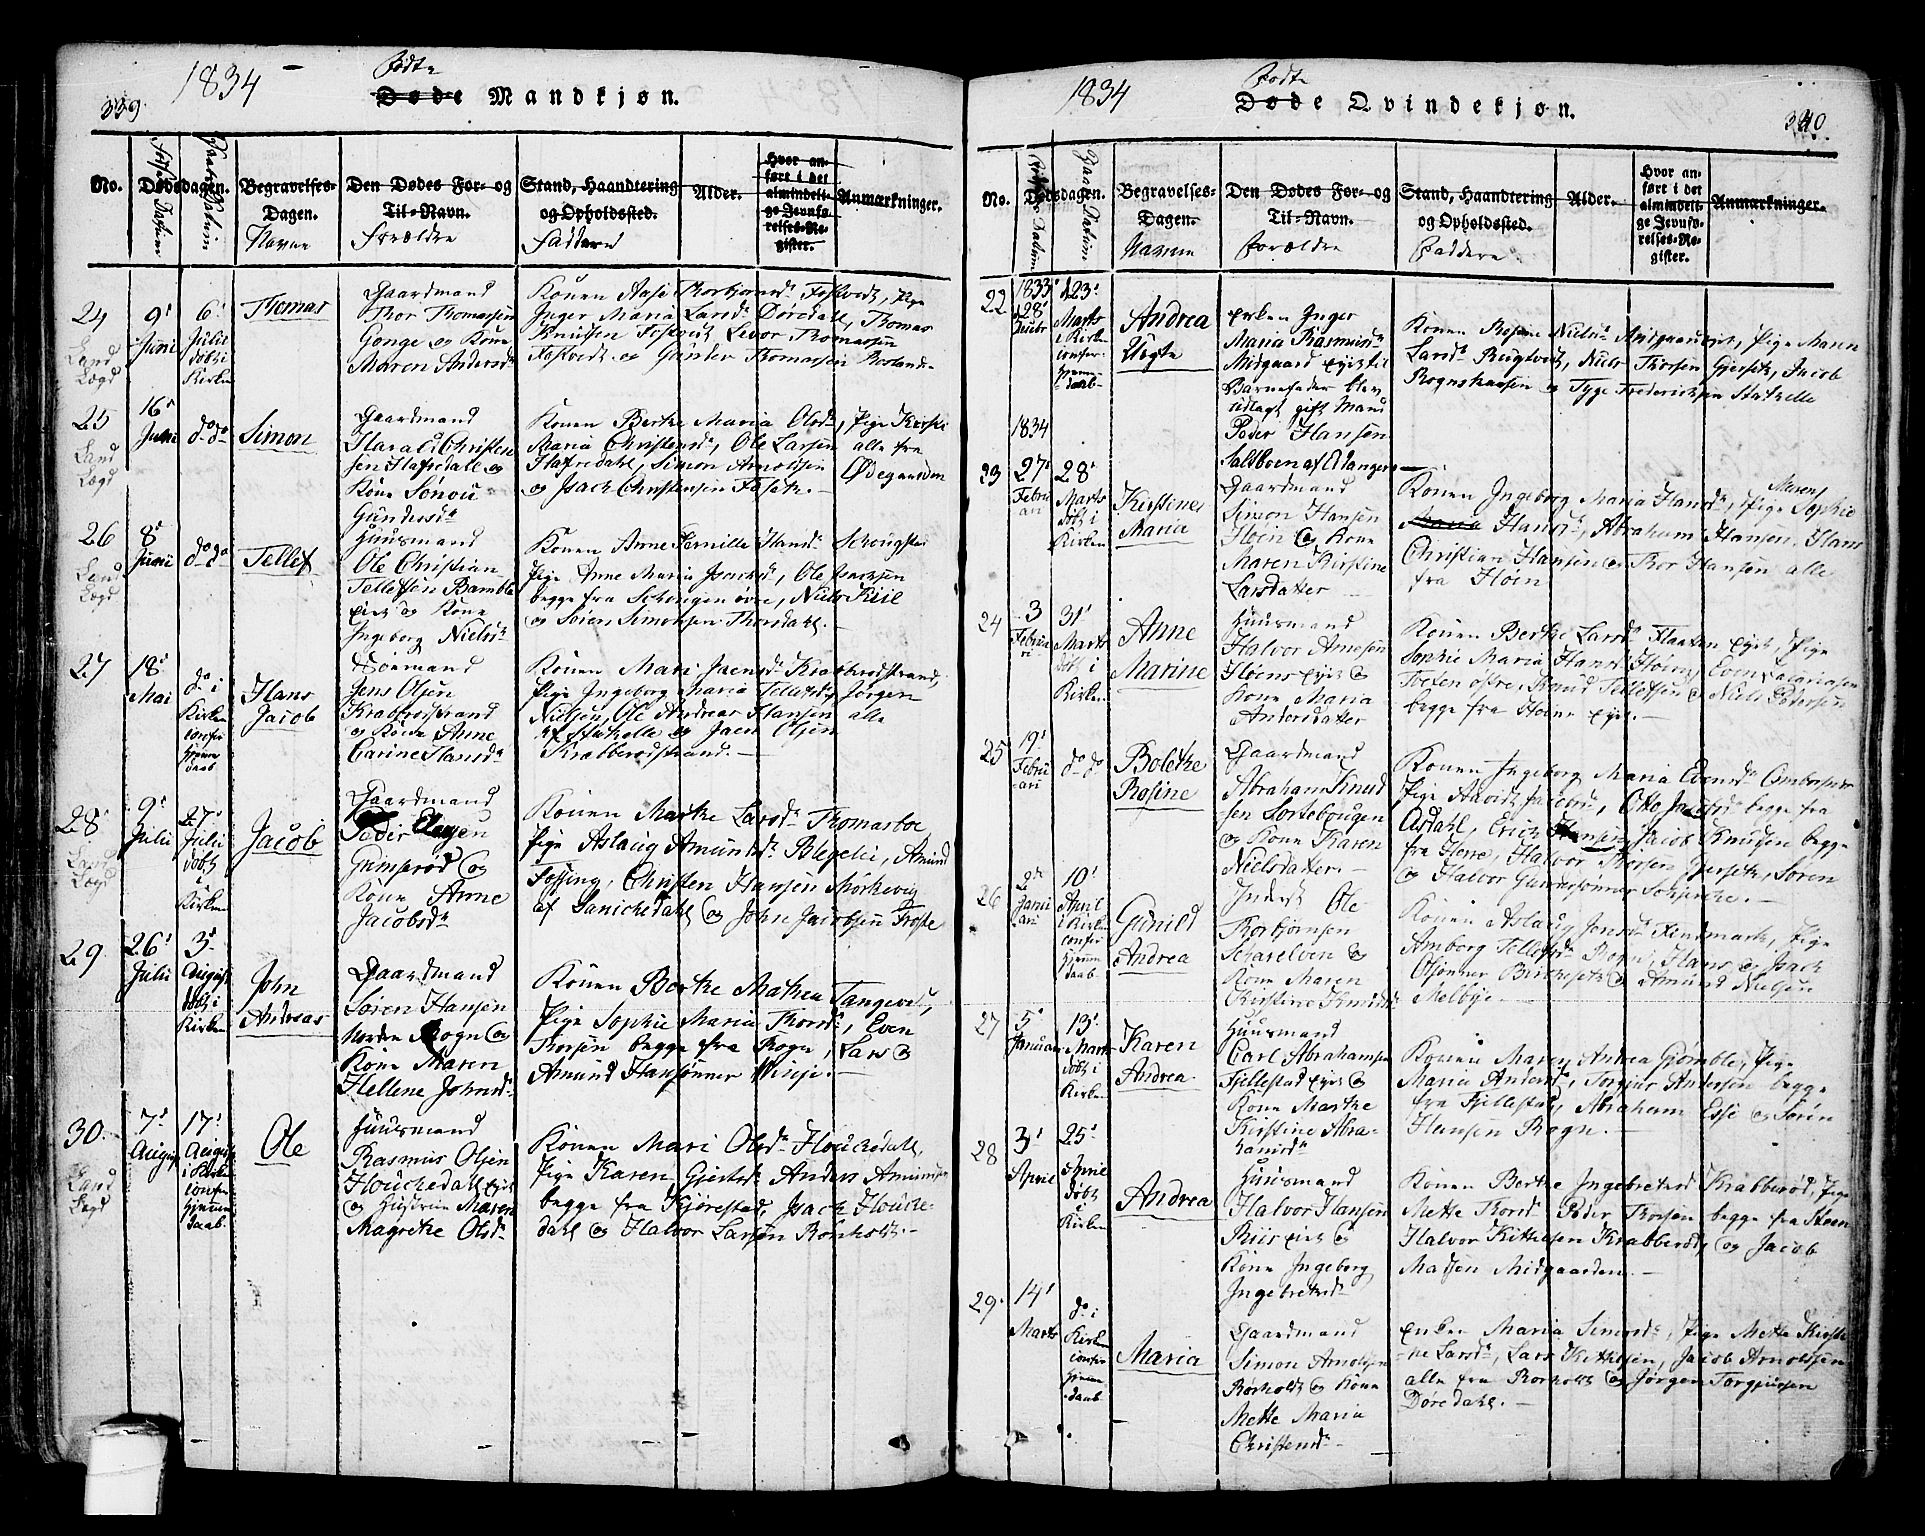 339.
1834
Fødte
Døde Mandkjøn.
No.
Dødsdagen.
Fødsels Datum
Daabs Datum
Begravelses-
Dagen.
Navne
Den Dødes For- og
Til-Navn.
Forældre
Stand, Haandtering
og Opholdssted.
Faddere
Alder.
Hvor an-
ført i det
almindeli-
ge Jevnfø-
relses-Re-
gister.
Anmærkninger.
24
Land
Lægd
9d
Juni
6d
Julii
døbt i
Kirken
Thomas
Gaardmand
Thor Thomassen
Gonge og Kone
Maren Andersdr
Konen Aase Thorbjørnsdr, Fostvedt, Pige
Inger Maria Larsdr Døredahl, Thomas
Knudsen Fostvedt, Levor Thomassen
Fostvedt og Gunder Thomassen
25
Land
Lægd
16d
Juni
do do
Simon
Gaardmand
Harald Christen
sen Hafredahl og
Kone
Gundersdr
Konen Berthe Maria Olsdr, Pige
Maria Christensdr, Ole Larsen alle fra
Hafredahl, Simon Arnoldsen Ødegaarden
og Isach Christensen
26
Land
Lægd
8d
Juni
do do
Tellef
Huusmand
Ole Christian
Tellefsen Bamble
Eiet og Kone
Ingeborg Nielsdr
Konen Anne Pernille Hansdr
Pige Anne Maria Isachsdr, Ole Isachsen
begge fra øvre, Niels
og Søren Simonsen Thorsdahl.
27
18d
Mai
do i
Kirken
confir
hjemme
daab
Hans
Jacob
Søemand
Jens Olsen
Krabberødstrand
og Kone Anne
Carine Hansdr
Konen Mari Jensdr Krabberødstrand,
Pige Ingeborg Maria Jørgen
Nielsen, Ole Andreas Hansen alle
af Stathelle og Jacob Olsen
Krabberødstrand.
28
Land
Lægd
9d
Julii
27d
Julii
døbt
i
Kirken
Jacob
Gaardmand
Peder
Gumserød og
Kone Anne
Jacobsdr
Konen Marthe Larsdr Thomasboe
Pige Aslaug Amundsdr Blegeli, Amund
Fossing, Christen Hansen Mørkevig
af Sanichedahl og John Jacobsen Troste
29
26d
Julii
3d
August
døbt i
Kirken
John
Andreas
Gaardmand
Søren Hansen
Nordre Rogn og
Kone Maren
Hellene Johnsdr
Konen Berthe Mathea Tangevald,
Pige Sophie Maria Thorsdr, Even
Thorsen begge fra Rogn, Lars og
Amund Hansønner Vinje.
30.
Land
Lægd
7d
August
17d
August
i Kirken
confir
hjemme
daab
Ole
Huusmand
Rasmus Olsen
Houckedahl Eiet
og Hustrue Maren
Magrethe Olsdr
Konen Mari Olsdr Houckedahl,
Pige Karen Gjertsdr Anders Amundsen
begge fra Kjørestad, Isach Houcke
dahl og Halvor Larsen Rørholdt.
1834
Fødte
Døde Qvindekjøn.
340.
No.
Dødsdagen.
Fødsels Datum
Daabs Datum
Begravelses-
Dagen.
Navne
Den Dødes For- og
Til-Navn.
Forældre
Stand, Haandtering
og Opholdssted.
Faddere
Alder.
Hvor an-
ført i det
almindeli-
ge Jevnfø-
relses-Re-
gister.
Anmærkninger.
22
1833
d 28d
d 23d
Marts
i Kirken
confir
hjemme
daab
Andrea
Uægte
Enken Inger
Maria Rasmusdr
Midgaard Eiet til
Barnefader blev
udlagt gift Mand
Peder Hansen
Saltboen af Eidanger
Konen Nielsdr Midgaardeiet, Pige Maren
Larsdr Rugtvedt, Niels Thorsen Gjerset, Jacob
Rognshausen og Tyge Frederiksen Stathelle
1834
23
27d
Febru
ari
28d
Marts
døbt i
Kirken
Kirstine
Maria
Gaardmand
Simon Hansen
Hoen og Kone
Maren Kirstine
Larsdatter
Konen Ingeborg Maria Hansdr, Pige Sophie
Maren
Maria Hansdr, Abraham Hansen, Hans
Christian Hansen og Thor Hansen alle
fra Hoen
24
3
Februa
ri
31d
Marts
døbt i
Kirken
Anne
Marine
Huusmand
Halvor Arnesen
Hoens Eiet og
Kone Maria
Andersdatter
Konen Berthe Larsdr Eiet, Pige
Sophie Maria Hansdr Hoen, Even Zachariasen
Tveten østre, Knud Tellefsen og Niels Pedersen
begge fra Hoens Eiet.
25
19d
Febru
ari
do do
Bolethe
Rosine
Gaardmand
Abraham Knud
sen Sortebougen
og Kone Karen
Nielsdatter.
Konen Ingeborg Maria Evensdr
Pige Jacobsdr, Otto Jacobsdr begge fra
Asdahl, Erich Hansen, Jacob Knudsen begge
fra Herre, Halvor Thorsen Gjerset, Søren
og Halvor Gunnersønner
26
2den
Janu
ari
10d
April
i Kirken
confir
hjemme
daab
Gunild
Andrea
Inderst Ole
Thorbjørnsen
og
Kone Maren
Kirstine Knudsdr
Konen Aslaug Jensdr Findmark, Pige
Amborg Tellefsdr Rogn, Hans og Isach
Olsønner og Amund Nielsen
Melbye.
27
5d
Januar
13d
Marts
døbt i
Kirken
Karen
Andrea
Huusmand
Carl Abrahamsen
Fjellestad Eiet og
Kone Marthe
Kirstine Abra-
hamsdr
Konen Maren Andrea Gjømble, Pige
Maria Andersdr, Torgius Andersen begge
fra Fjellestad, Abraham og Søren
Hansen Rogn.
28
3d
April
25d
April
døbt
i
Kirken
Andrea
Huusmand
Halvor Hansen
Riis Eiet og
Kone Ingeborg
Ingebretsdr
Konen Berthe Ingebretsd Krabberød, Pige
Mette Thorsd Peder Thorsen begge fra Steen
Halvor Kittelsen Krabberød, og Jacob
Madsen Midgaarden.
29.
14d
Marts
do i
Kirken
confir
hjemme
daab
Maria
Gaardmand
Simon Arnoldsen
Rørholdt og Kone
Mette Maria
Christensdr
Enken Maria Simonsdr, Pige Mette Kirsti
ne Larsdr, Lars Kittelsen, Jacob Arnoldsen
alle fra Rørholdt og Jørgen Torgiussen
Døredahl.